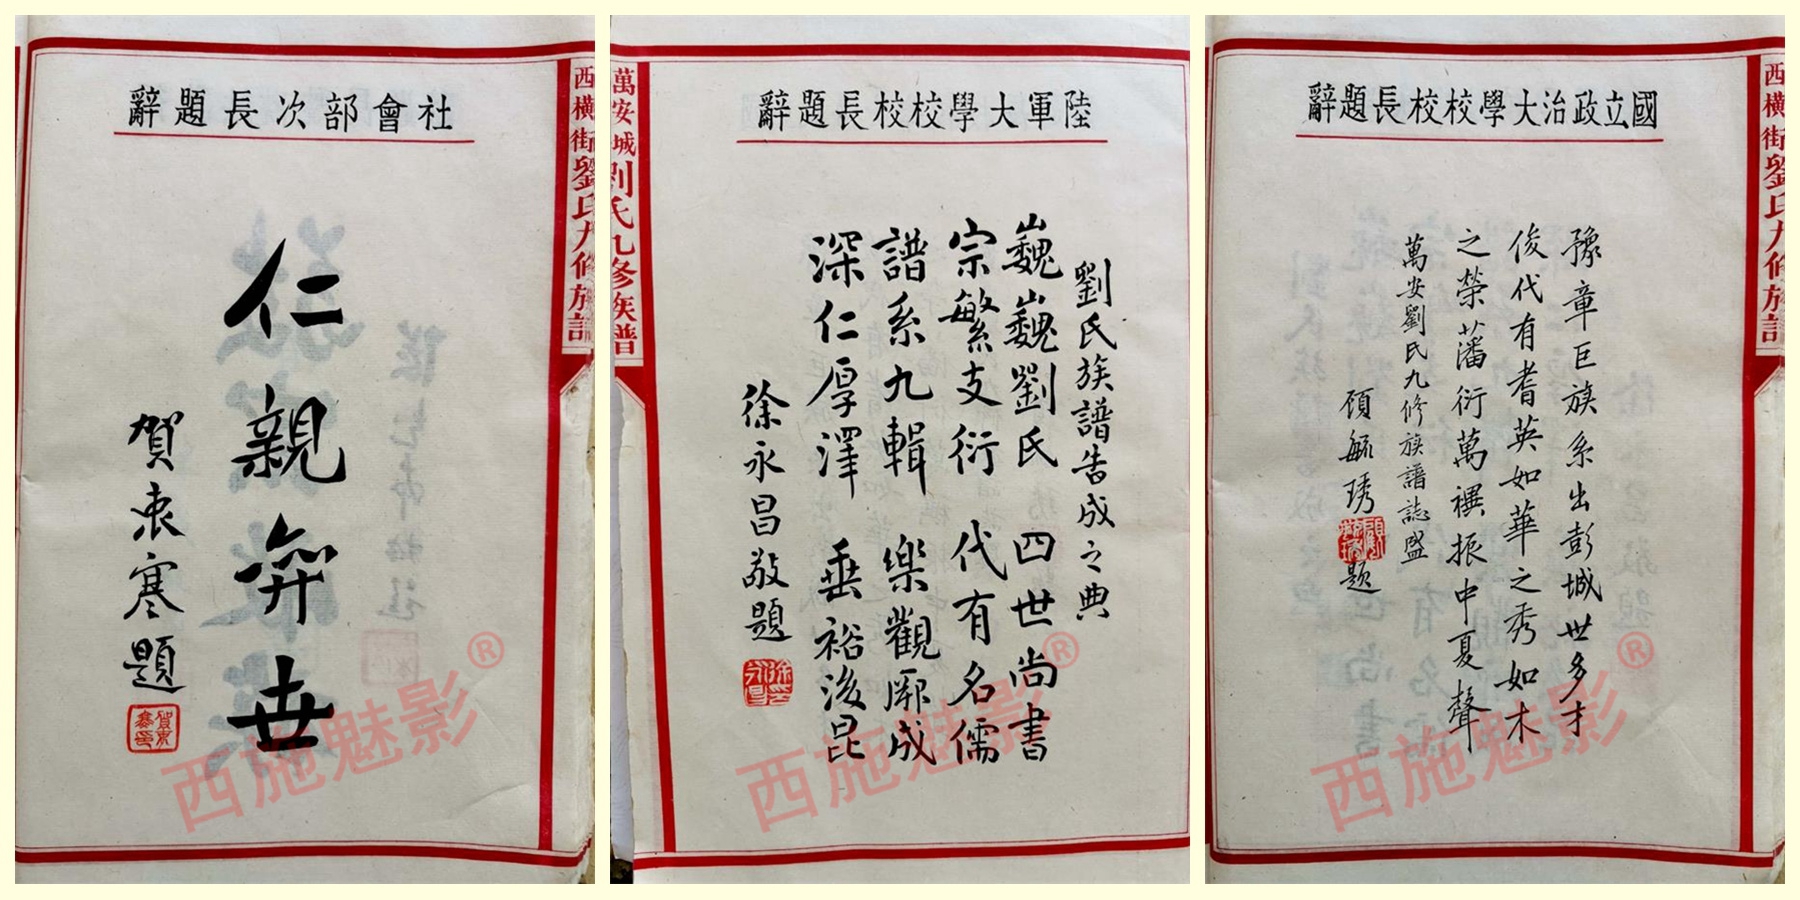 社會部次長題辭
西橫街劉氏九修族譜
仁親弈世
賀衷寒題
賀衷寒印
西施魅影®
陸軍大學校校長題辭
萬安城劉氏九修族譜
劉氏族譜告成之典
巍巍劉氏 四世尚書
宗繁支衍 代有名儒
譜系九輯 樂觀厥成
深仁厚澤 垂裕後昆
徐永昌敬題
徐永昌印
西施魅影®
國立政治大學校校長題辭
西橫街劉氏九修族譜
豫章巨族系出彭城世多才
俊代有耆英如華之秀如木
之榮蕃衍萬禩振中夏聲
萬安劉氏九修族譜誌盛
顧毓琇題
西施魅影®